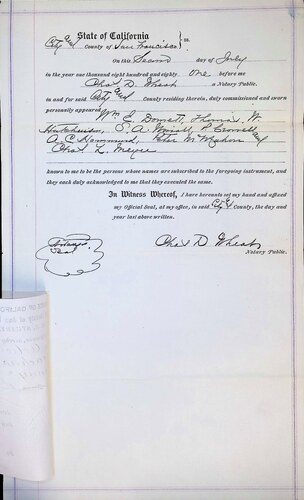 State of California
City and County of San Francisco } ss.
On this Second day of July
in the year one thousand eight hundred and eighty one before me
Chas D. Wheat a Notary Public.
in and for said City and County residing therein, duly commissioned and sworn
personally appeared Wm E. Thomas W.
Hutchinson, S. A.
A. C. Hammond, Peter McMahon and
Chas L.
known to me to be the persons whose names are subscribed to the foregoing instrument, and
they each duly acknowledged to me that they executed the same.
In Witness Whereof, I have hereunto set my hand and affixed
my Official Seal, at my office, in said City & County, the day and
year last above written.
Notary's
Seal
Chas D. Wheat
Notary Public.